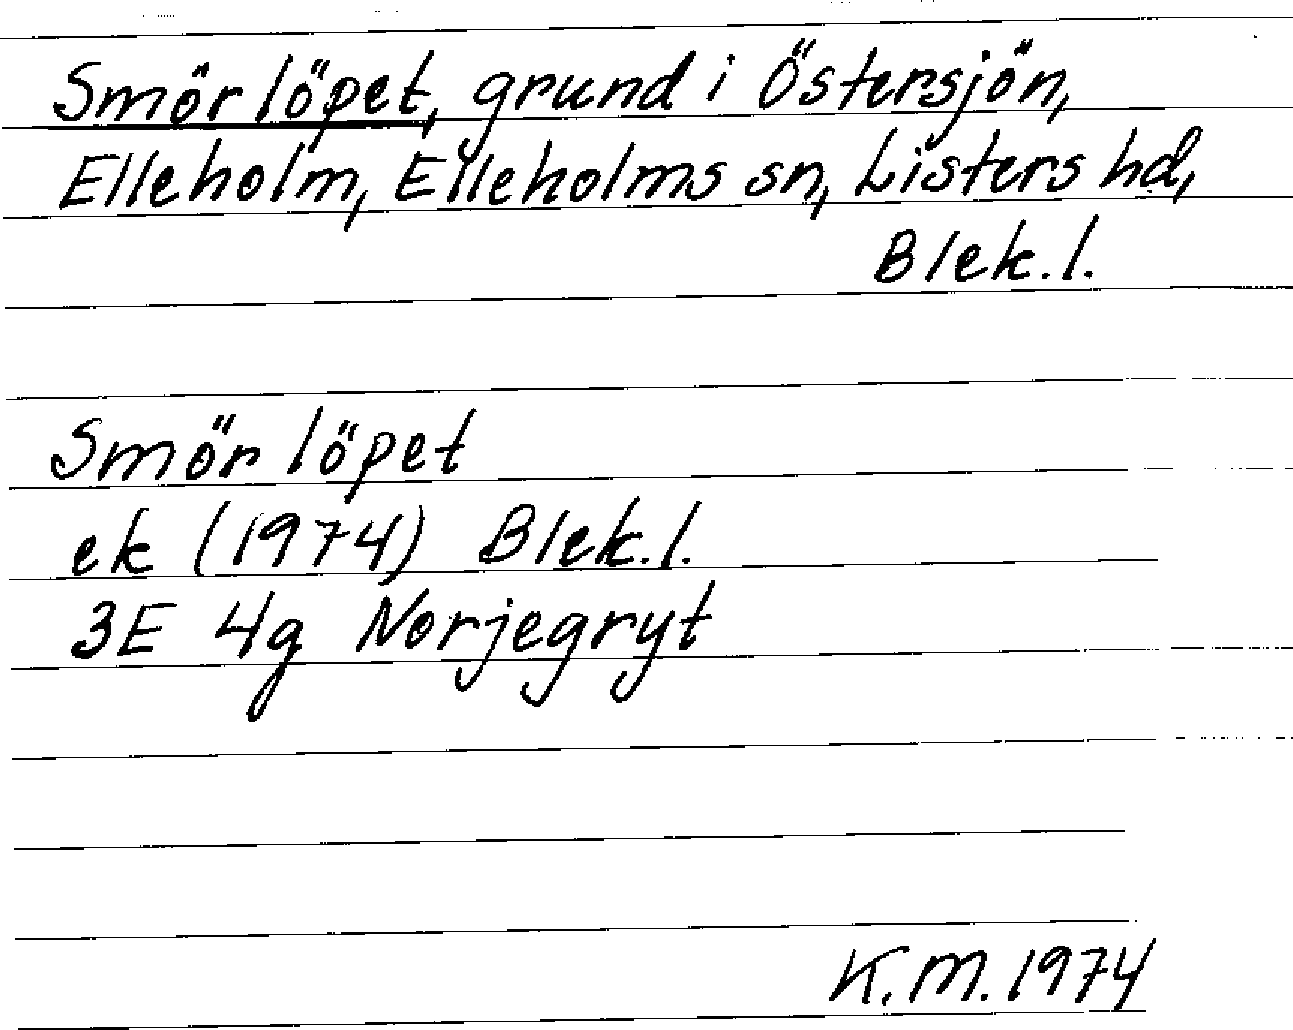 Smörlöpet, grund i Östersjön,
Elleholm, Elleholms sn, Listers hd,
Blek.l.
Smörlöpet
ek (1974) Blek.l.
3E 4g Norjegryt
K.M. 1974